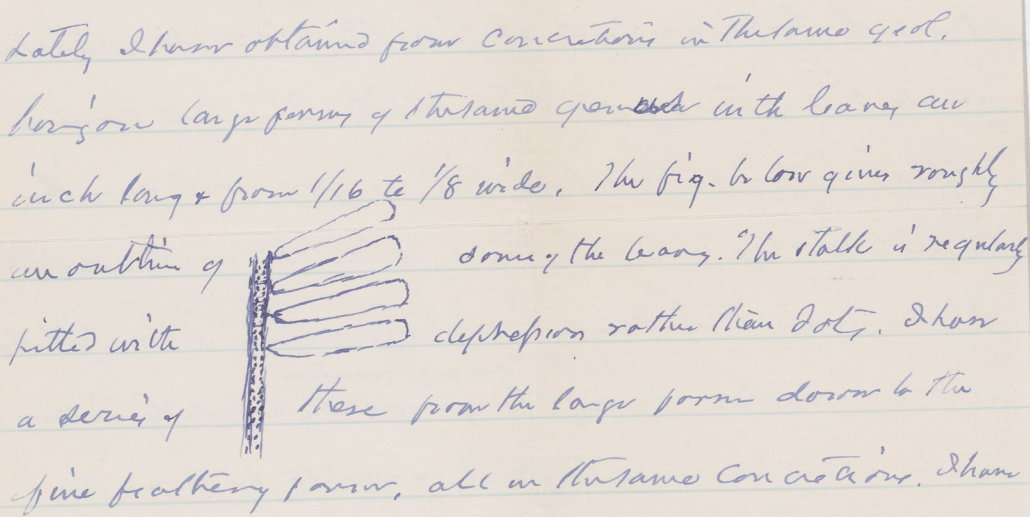 Lately I have obtained from concretions in the same geol.
horizon large forms of the same genus with leaves an
inch long & from 1/16 to 1/8 wide. The fig. below gives roughly
an outline of some of the leaves. The stalk is regularly
pitted with depressions rather than dots. I have
a series of these from the large form down to the
fine feathery forms, all in the same concretions. I have